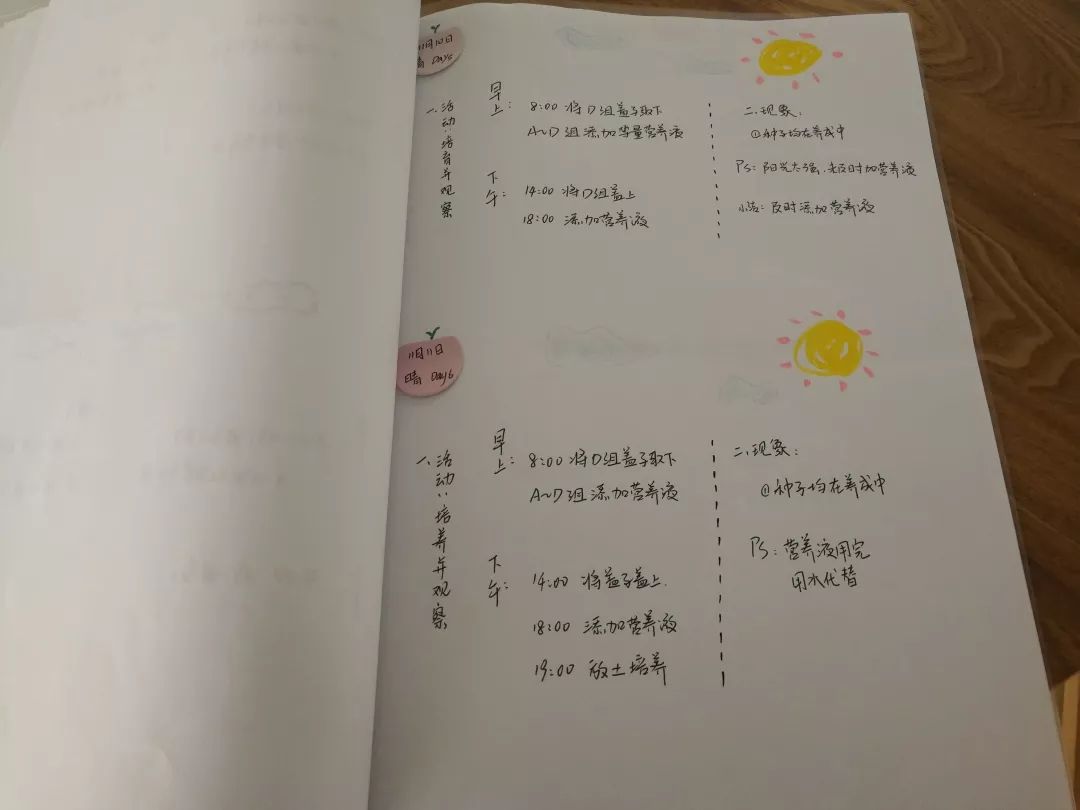 11月10日
晴 Day5
一、活动:培育并观察
早上:
8:00 将D组盖子取下
A~D 组添加等量营养液
下午:
14:00 将D组盖上
18:00 添加营养液
二、现象:
①种子均在养成中
Ps: 阳光太强,及时加营养液
小洁: 及时添加营养液
11月11日
晴 Day6
一、活动:培养并观察
早上:
8:00 将D组盖子取下
A~D组添加营养液
下午:
14:00 将盖子盖上.
18:00 添加营养液
19:00 放土培养
二、现象:
①种子均在养成中
Ps: 营养液用完
用水代替